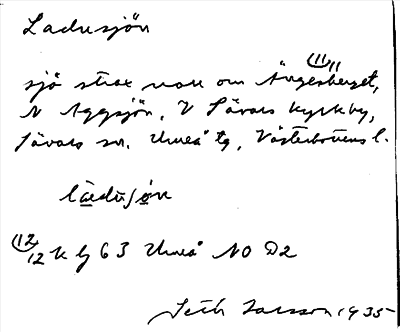 Ladusjön
11 11
sjö strax norr om Ängesberget,
N Aggsjön, V Sävars kyrkby,
Sävars sn. Umeå tg, Västerbottens l.
lædusjøn
12 12 K bj 63 Umeå NO D2
Seth Larsson 1935